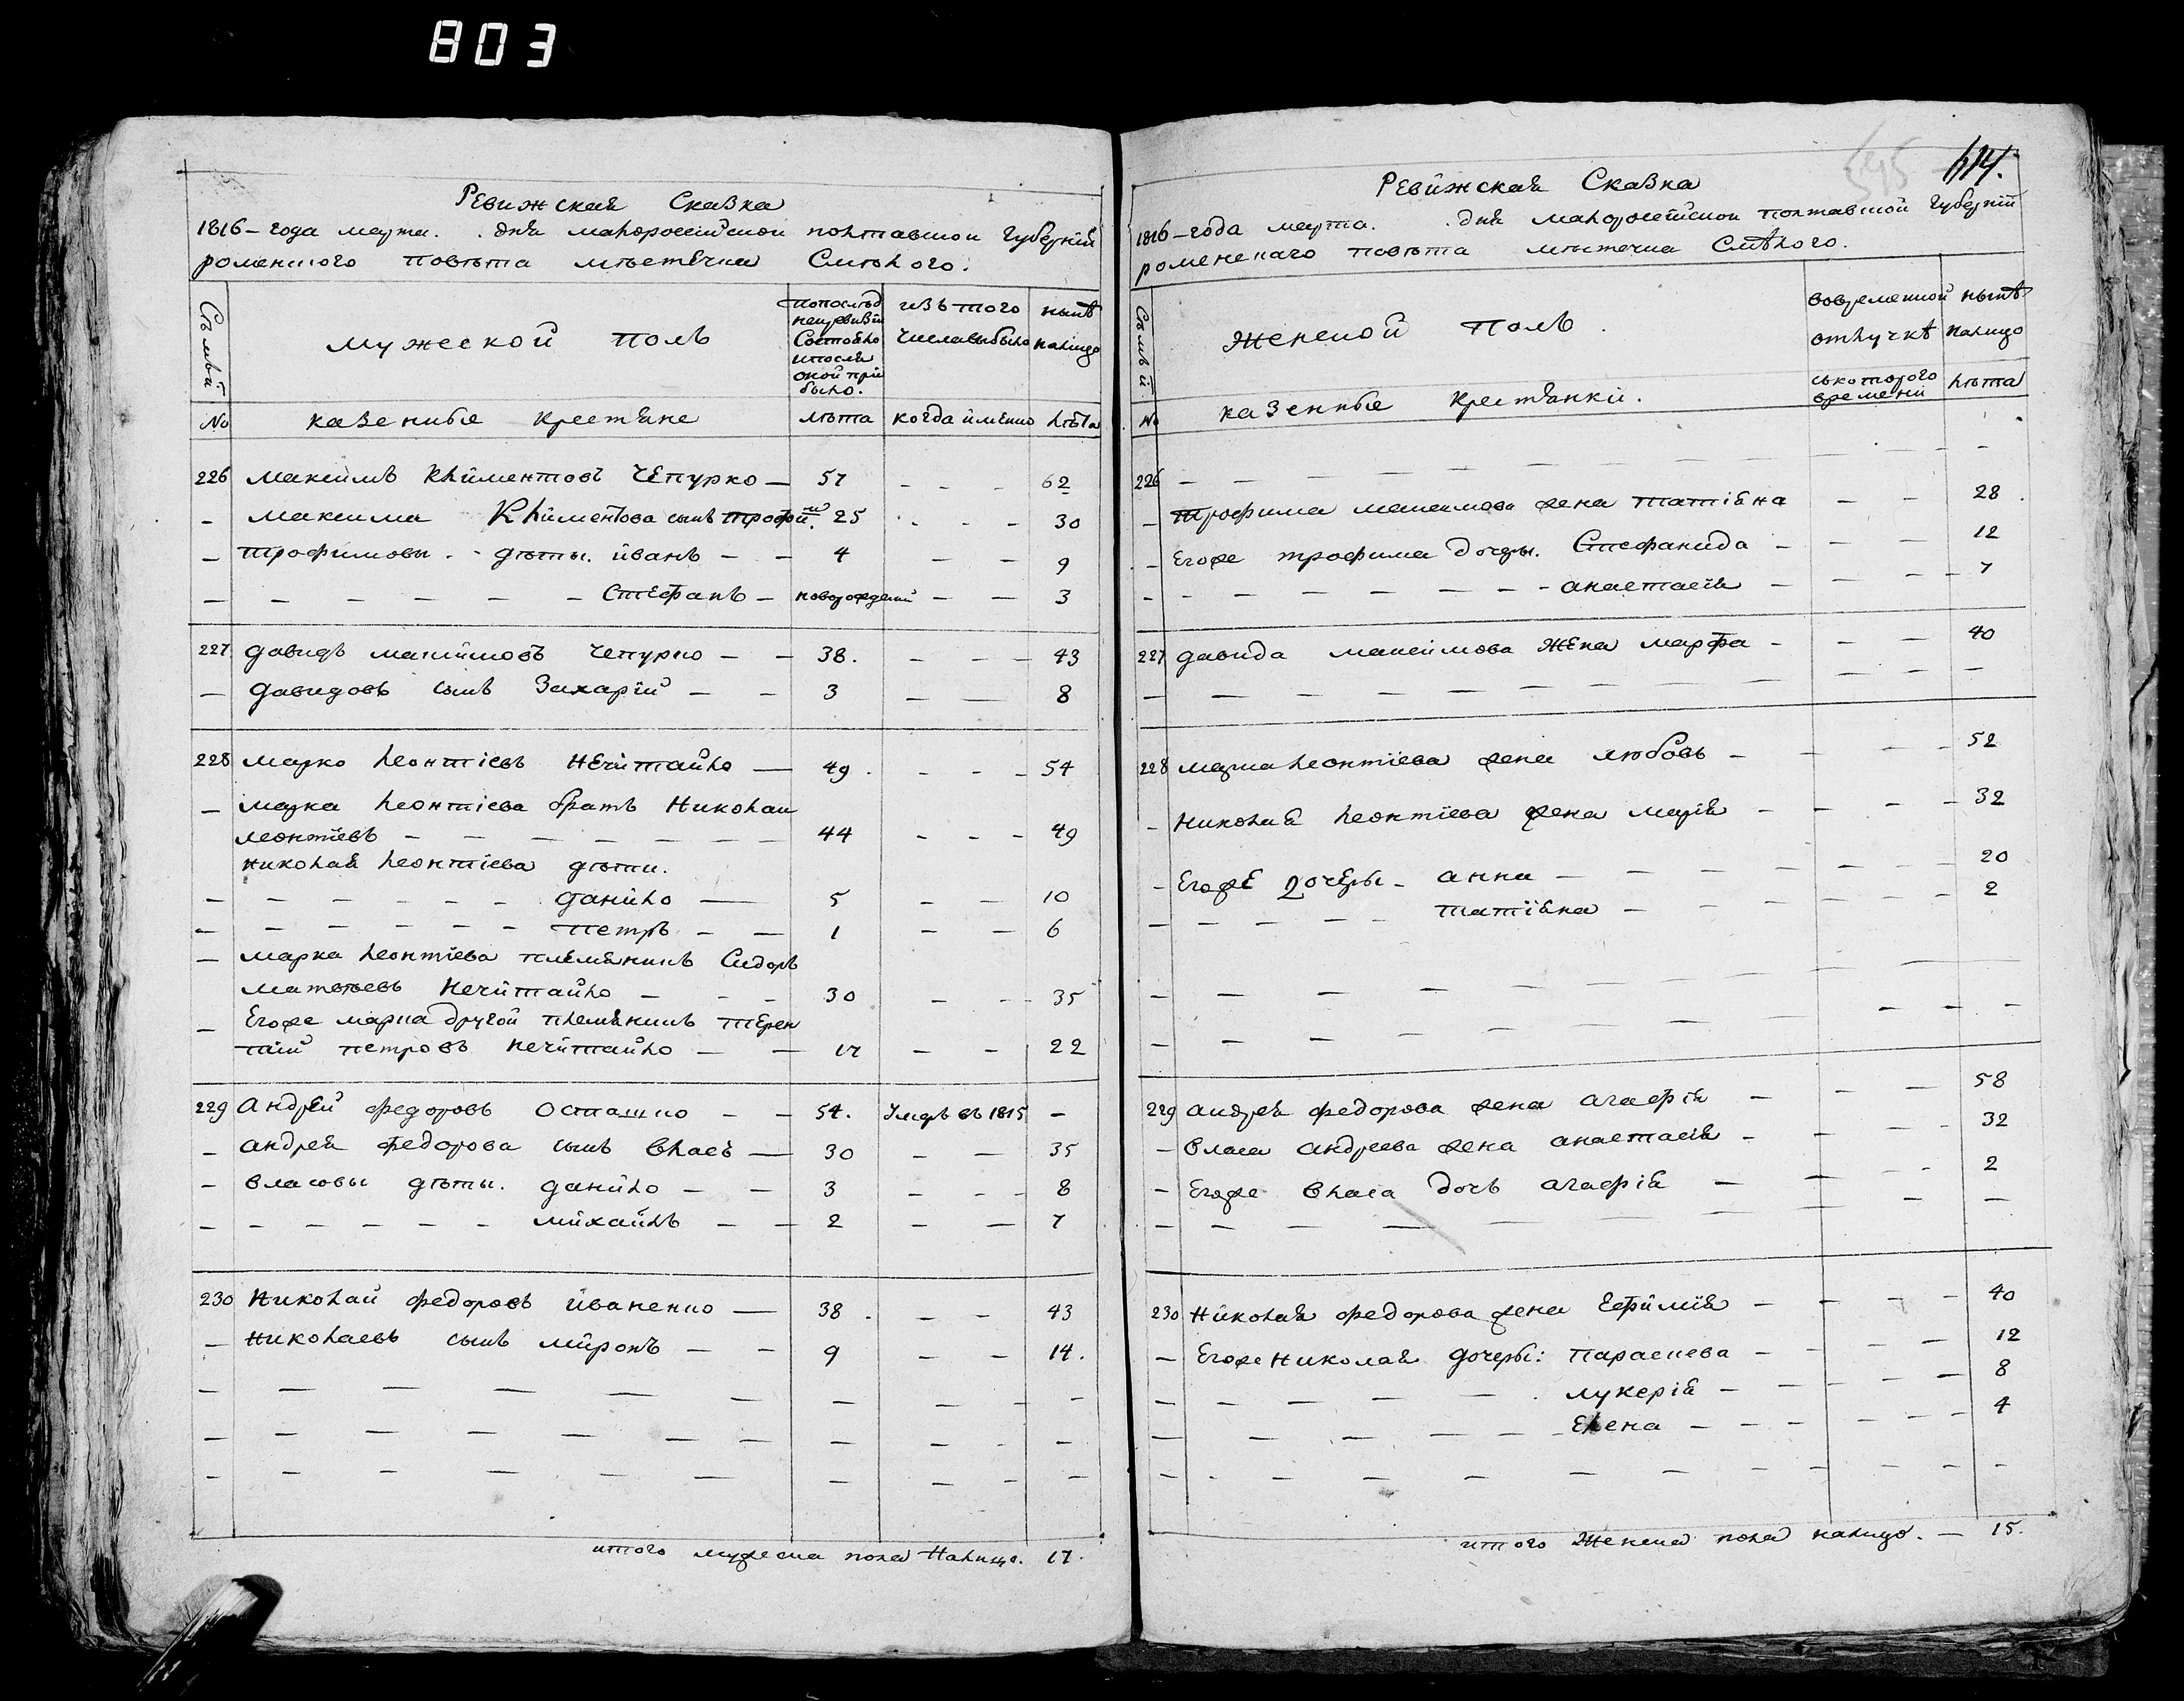 803
Ревижская Сказка
1816-года марта. . дня малороссийской полтавской губернїи
роменского повѣта мѣстечка Смѣлого.
Сѣмьи
мужеской полъ
попослѣд
неиревизїи
Состояло
ипосля
оной при
было.
изъ того
числавыбыло
нынѣ
налицо
№
казенные крестяне
лѣта
когда имѣнно
лѣта
226 максимъ климентовъ Чепурко — 57 - - - 62
- максима Климентова сынъ трофим. 25 - - - 30
- трофимовы - дѣты. иванъ - - 4 - - 9
- - - - - - Стефанъ - новорожденїй - - 3
227 давидъ максимовъ чепурко - - 38. - - - 43
- давидовъ сынъ Захарїй - - 3 - - 8
228 марко леонтїевъ нечитайло — 49. - - - 54
- марка леонтїева братъ николай
леонтїевъ - - - - - - 44 - - - 49
николая леонтїева дѣти.
- - - - - - данило — 5 - - 10
- - - - - - петръ - - 1 - - 6
- марка леонтїева племянникъ Сидоръ
матвѣевъ нечитайло - - - 30 - - - 35
- Егоже марка другой племянникъ терен
тїй петровъ нечитайло - - 17 - - 22
229 андрей федоровъ осташко - - 54. Умеръ въ 1815 -
- андрея федорова сынъ власъ — 30 - - 35
- власовы дѣты. данило - - 3 - - - 8
- - - - - - михайлъ - - 2 - - 7
230 николай федоровъ иваненко — 38. - - 43
- николаевъ сынъ миронъ - - 9 - - 14.
итого мужеска пола налицо. 17.
595 614.
Ревижская Сказка
1816-года марта. . дня малоросийской полтавской губернїи
роменскаго повѣта мѣстечка Смѣлого.
Сѣмьи
женской полъ.
вовременной
отлучкѣ
нынѣ
налицо
№
казенные крестянки.
скоторого
времени
лѣта
226 - - - - - - - - -
- трофима максимова жена татїяна - - 28.
- Егоже трофима дочеры. Стефанида - - - 12
- - - - - - - - анастасїя - - - 7
227 давида максимова жена марфа - - - 40
- - - - - - - - - - - -
228 марка леонтїева жена любовь - - - - 52
- николая леонтїева жена марїя - - - - 32
- Егоже дочеры - анна - - - - - - 20
- - - - - татїяна - - - - - - 2
229 андрея федорова жена агафїя - - - 58
- власа андреева жена анастасїя - - - - 32
- Егоже власа дочь агафїя - - - - 2
230 николая федорова жена Ефимїя - - - - 40
- Егоже николая дочеры: параскева - - - - 12
- - - - - лукерїя - - - - - 8
- - - - - Елена - - - - - - 4
итого женска пола налицо. — 15.